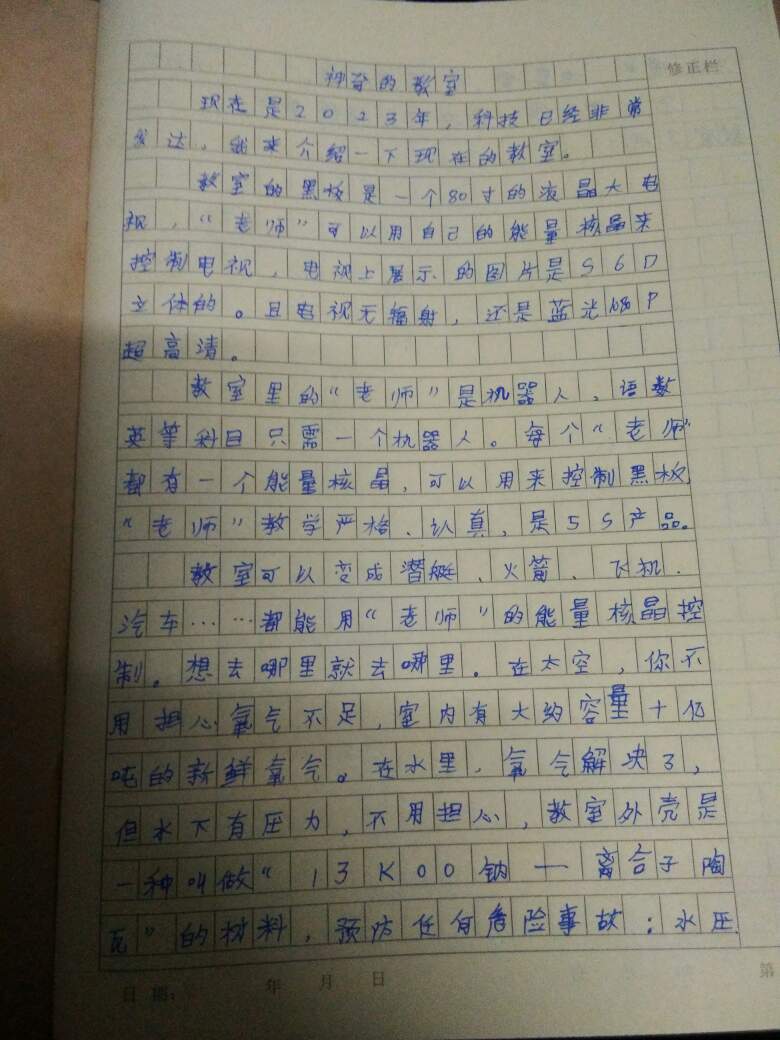 神奇的教室
修正栏
现在是2023年，科技已经非常
发达，我来介绍一下现在的教室。
教室的黑板是一个80寸的液晶大电
视，“老师”可以用自己的能量核晶来
控制电视，电视上展示的图片是S6D
立体的。且电视无辐射，还是蓝光1080P
超高清。
教室里的“老师”是机器人，语数
英等科目只需一个机器人。每个“老师”
都有一个能量核晶，可以用来控制黑板
“老师”教学严格、认真，是5S产品。
教室可以变成潜艇、火箭、飞机、
汽车……都能用“老师”的能量核晶控
制。想去哪里就去哪里。在太空，你不
用担心氧气不足，室内有大约容量十亿
吨的新鲜氧气。在水里，氧气解决了，
但水下有压力，不用担心，教室外壳是
一种叫做“13K00钠—离合子陶
瓦”的材料，预防任何危险事故：水压
日期： 年 月 日
第